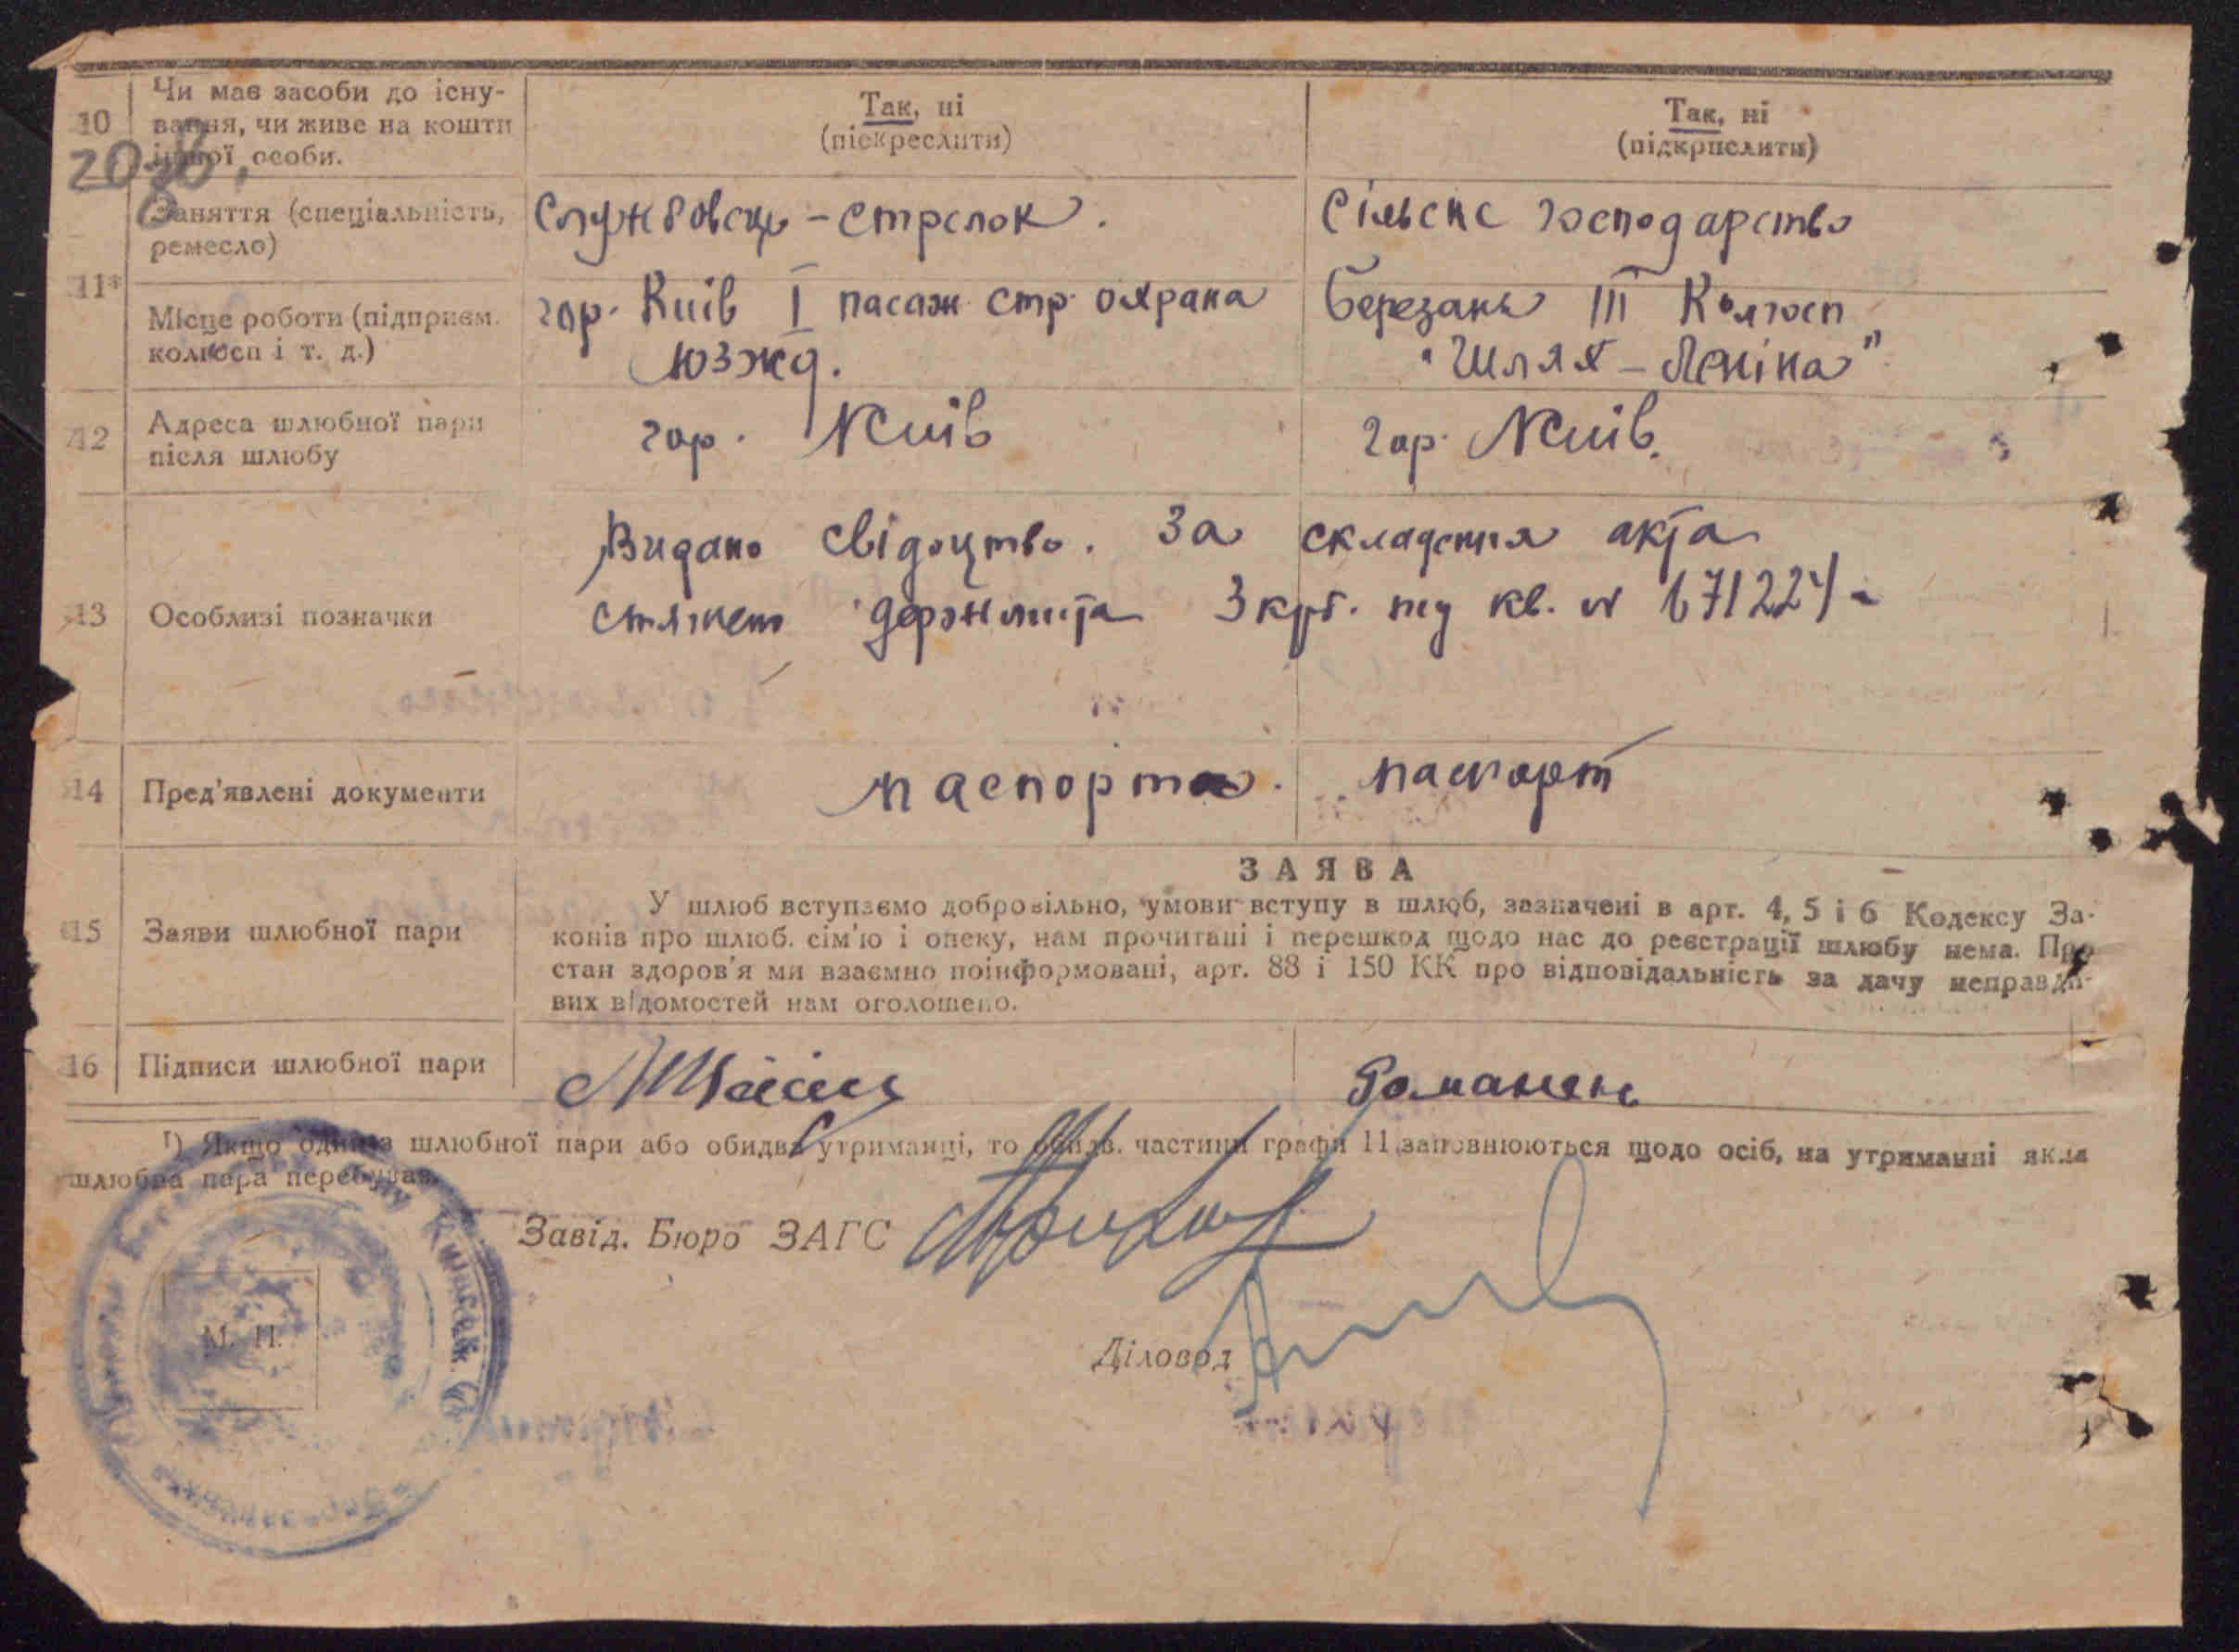 10 Чи має засоби до існу-
вання, чи живе на кошти
іншої особи.
Так, ні
(піскреслити)
Так, ні
(підкрислити)
11*
Заняття (спеціальність,
ремесло)
Службовець - стрелок.
Сільске господарство
Місце роботи (підприєм.
колгосп і т. д.)
гор. Київ I пасаж стр. охрана
ЮЗЖД.
Березань III Колгосп
"Шлях - Леніна"
12 Адреса шлюбної пари
після шлюбу
гор. Київ
гор. Київ.
13 Особлизі позначки
Видано свідоцтво. За складення акта
держмита 3 крб. кв. № 671224
14 Пред'явлені документи
паспорта.
паспорт
15 Заяви шлюбної пари
ЗАЯВА
У шлюб вступаємо добровільно, умови вступу в шлюб, зазначені в арт. 4, 5 і 6 Кодексу За-
конів про шлюб. сім'ю і опеку, нам прочитані і перешкод щодо нас до реєстрації шлюбу нема. Про
стан здоров'я ми взаємно поінформовані, арт. 88 і 150 КК про відповідальність за дачу неправди-
вих відомостей нам оголошено.
16 Підписи шлюбної пари
¹) Якщо один із шлюбної пари або обидва утриманці, то частини графи 11 заповнюються щодо осіб, на утриманні яких
шлюбна пара перебуває.
Завід. Бюро ЗАГС
М. П.
Діловод